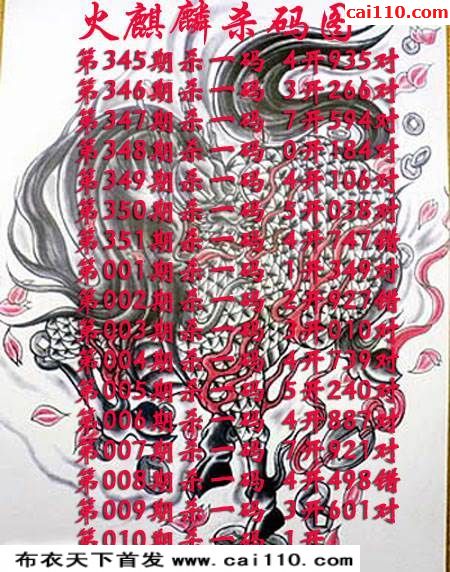 cai110.com
火麒麟杀码图
第345期杀一码 4开935对
第346期杀一码 3开266对
第347期杀一码 7开594对
第348期杀一码 0开184对
第349期杀一码 4开106对
第350期杀一码 5开038对
第351期杀一码 4开747错
第001期杀一码 1开349对
第002期杀一码 2开927错
第003期杀一码 3开010对
第004期杀一码 4开739对
第005期杀一码 5开240对
第006期杀一码 4开887对
第007期杀一码 7开927对
第008期杀一码 4开498错
第009期杀一码 3开601对
第010期杀一码 1开
布衣天下首发 www.cai110.com